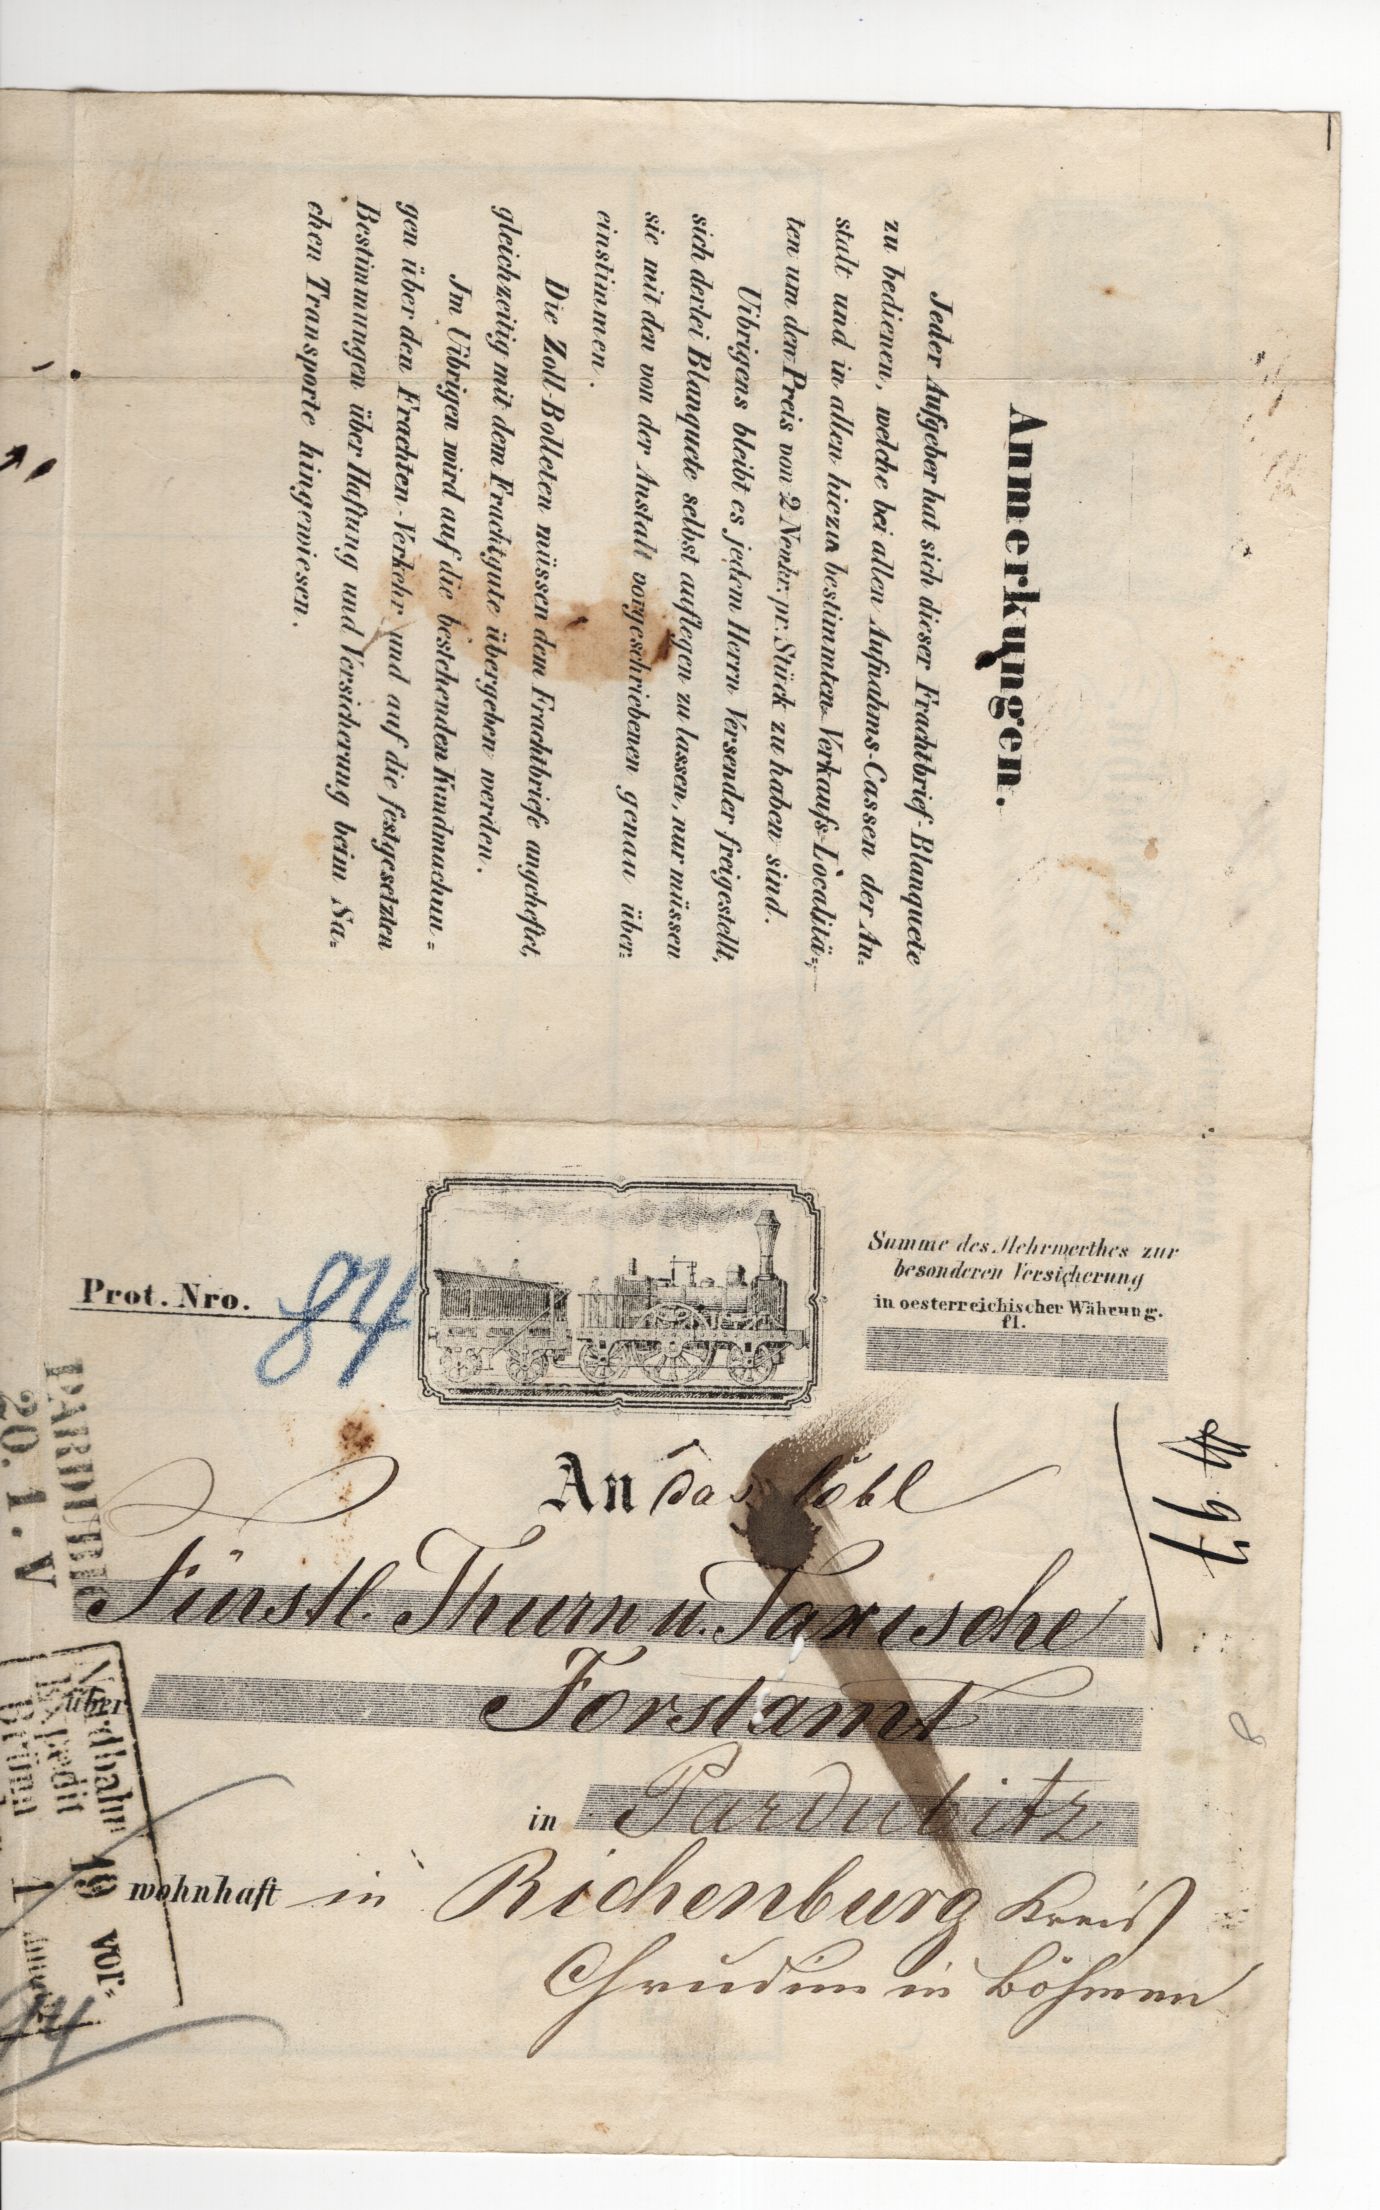 Anmerkungen.
Jeder Aufgeber hat sich dieser Frachtbrief-Blanquete
zu bedienen, welche bei allen Aufnahms-Cassen der An-
stalt und in allen hiezu bestimmten Verkaufs-Localitä-
ten um den Preis von 2 Neukr. pr. Stück zu haben sind.
Uibrigens bleibt es jedem Herrn Versender freigestellt,
sich derlei Blanquete selbst auflegen zu lassen, nur müssen
sie mit den von der Anstalt vorgeschriebenen genau über-
einstimmen.
Die Zoll-Bolleten müssen dem Frachtbriefe angeheftet,
gleichzeitig mit dem Frachtgute übergeben werden.
Im Uibrigen wird auf die bestehenden Kundmachun-
gen über den Frachten-Verkehr und auf die festgesetzten
Bestimmungen über Haftung und Versicherung beim Sa-
chen Transporte hingewiesen.
Summe des Mehrwerthes zur
besonderen Versicherung
in oesterreichischer Währung.
fl.
Prot. Nro. 84
An das löbl
Fürstl. Thurn u. Taxische
über Forstamt
in Pardubitz
wohnhaft in Richenburg Kreis
Chrudim in Böhmen
PARDUBIC
20. 1. V
Nordbahn
Expedit
Brünn
19 vor-
1
94
97
8